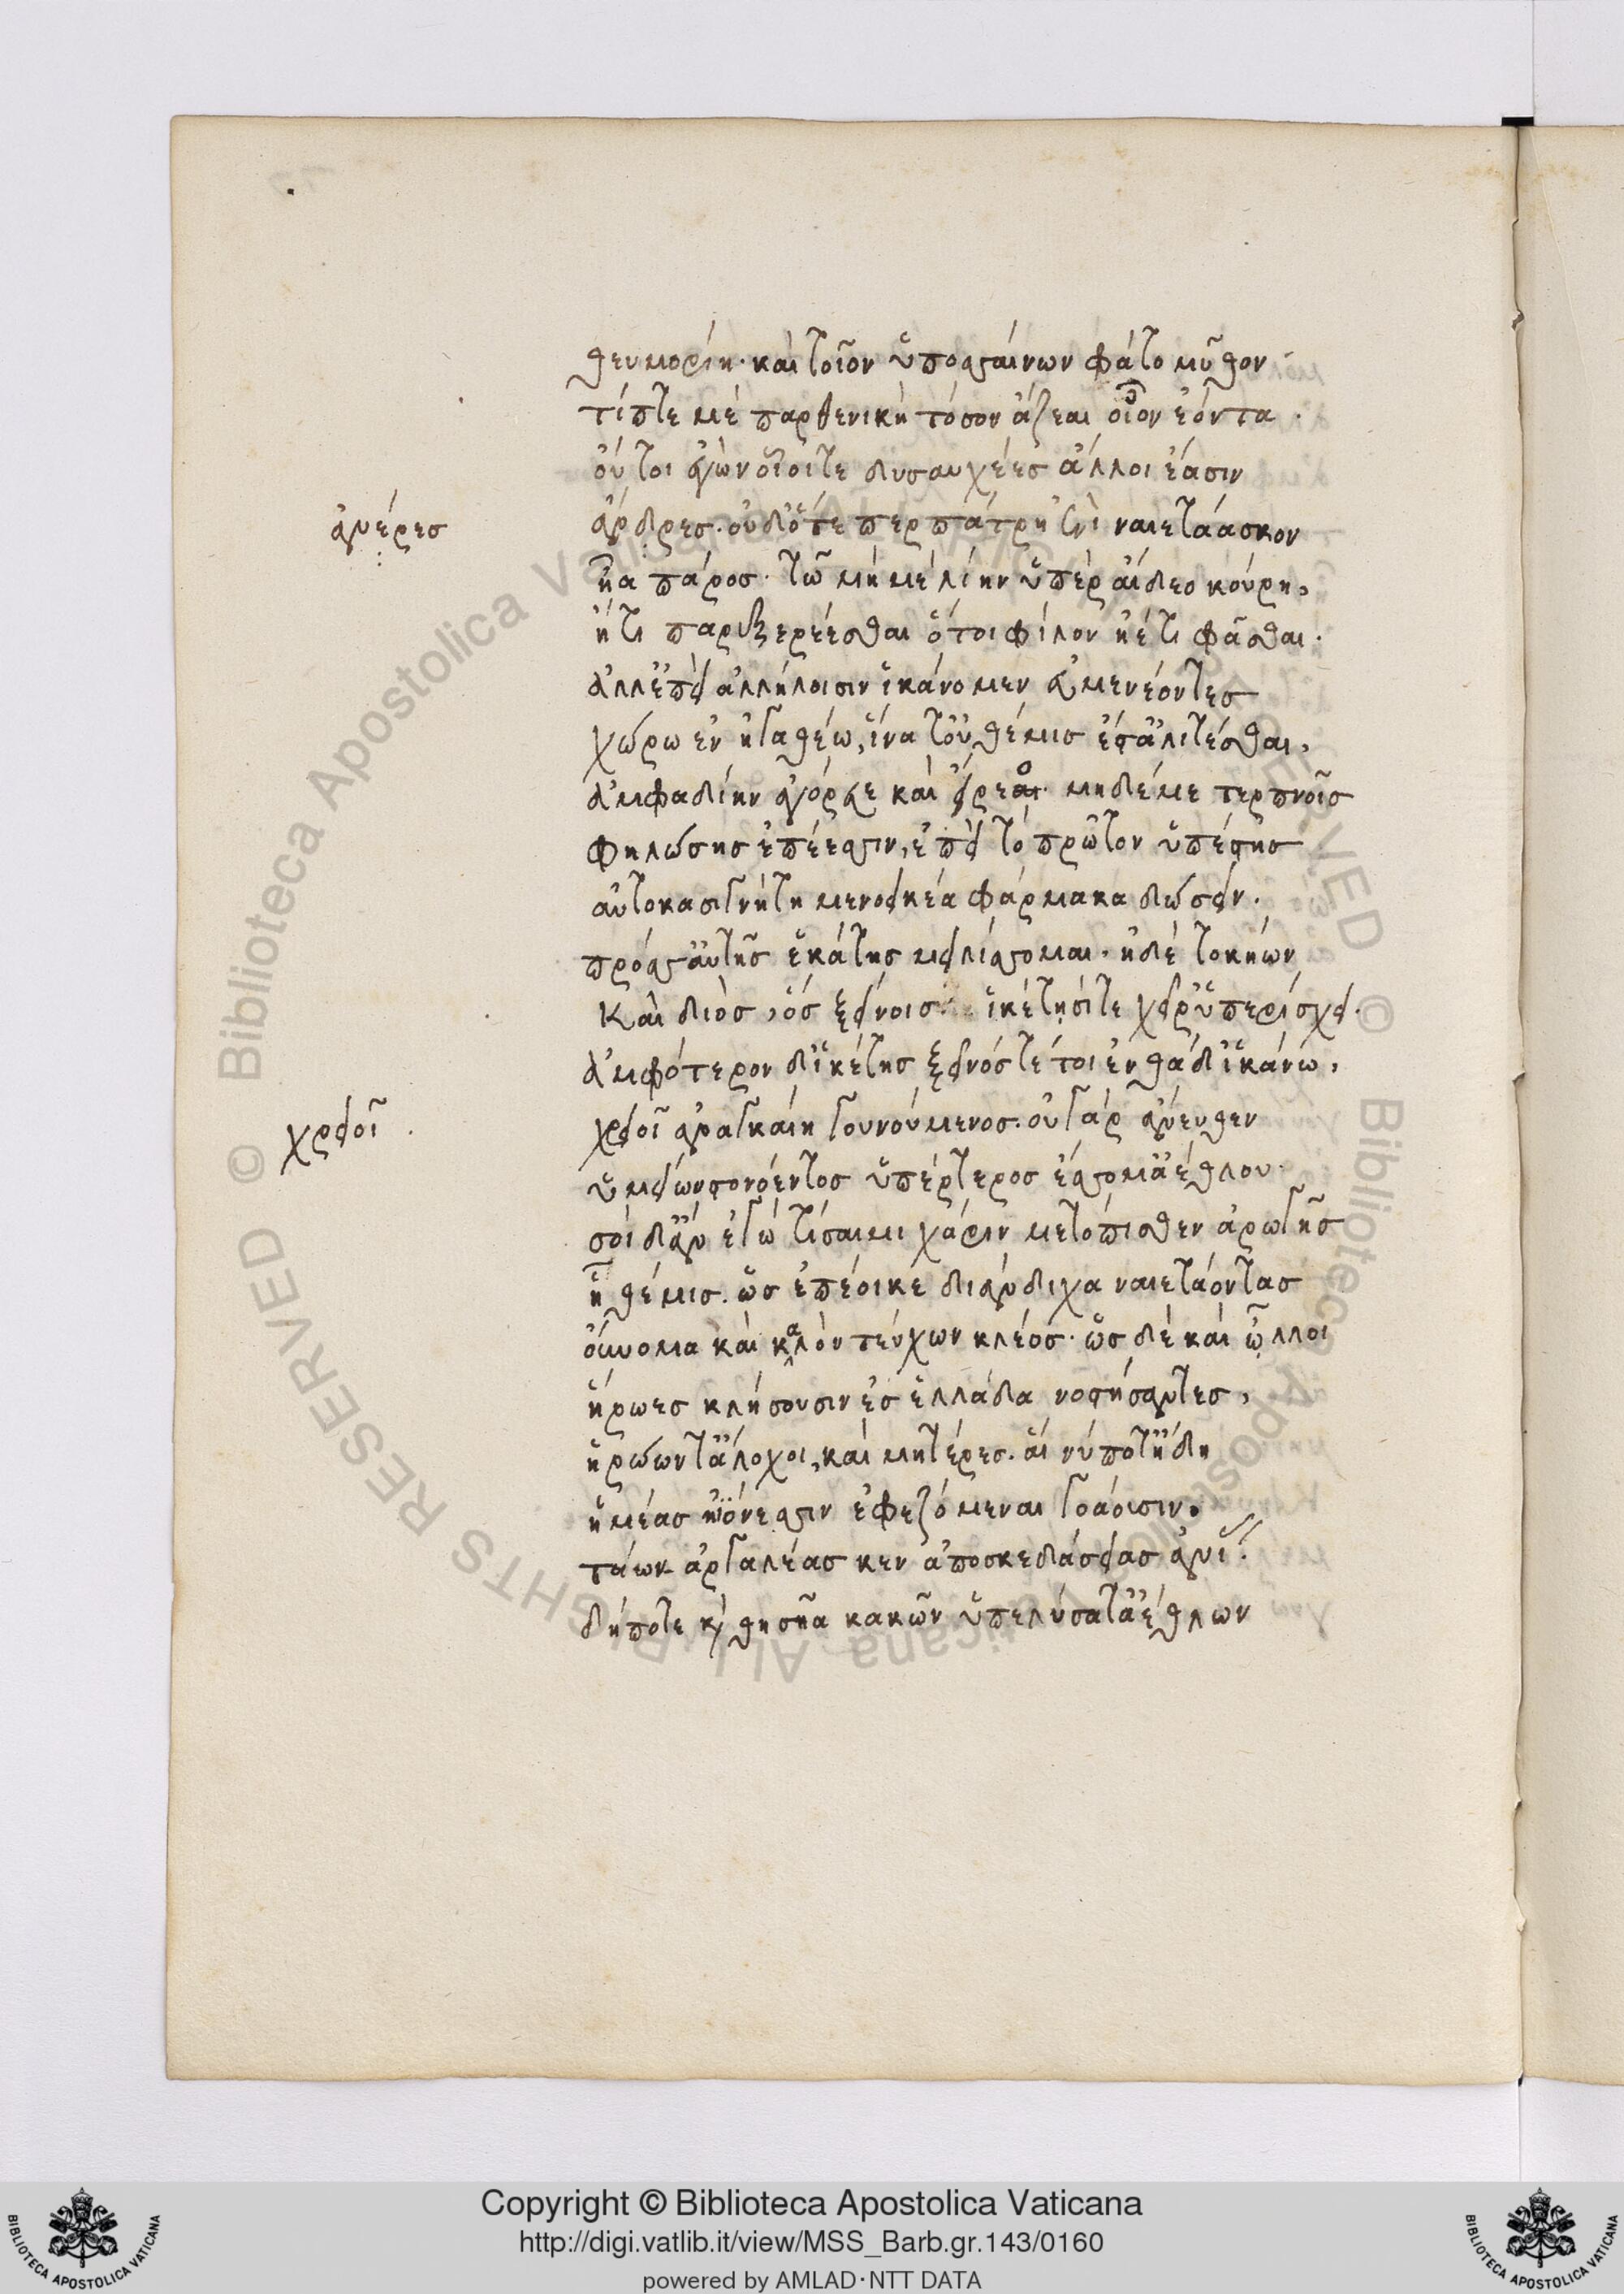 θευμορίη· καὶ τοῖον ὑποσσαίνων φάτο μῦθον
τίπτε μὲ παρθενικὴ τόσον ἅζεαι οἷον ἐόντα·
οὔ τοι ἐγὼν οἷοί τε δυσαυχέες ἄλλοι ἔασιν
ἀνέρες
ἄνδρες. οὐδ' ὅτε περ πάτρη ἔνι ναιετάασκον
ἦα πάρος· τῶ μή με λίην ὑπὲρ αἴδεο κούρη,
ἤ τι παρὲξ ἐρέεσθαι ὅ τοι φίλον ἠέ τι φᾶσθαι.
ἀλλ' ἐπεὶ ἀλλήλοισιν ἱκάνομεν εὐμενέοντες
χώρω ἐν ἠγαθέω, ἵνα τ' οὐ θέμις ἔστ' ἀλιτέσθαι,
ἀμφαδίην ἀγόρευε καὶ εἴρεο· μηδέ με τερπνοῖς
φηλώσης ἐπέεσσιν, ἐπεὶ τὸ πρῶτον ὑπέστης
αὐτοκασιγνήτη μενοεικέα φάρμακα δώσειν.
πρός σ' αὐτῆς ἑκάτης μειλίσσομαι. ἠδὲ τοκήων
Καὶ διὸς, ὃς ξείνοις ἱκέτησί τε χεῖρ' ὑπερίσχει.
ἀμφότερον δ' ἱκέτης ξεῖνός τέ τοι ἐνθάδ' ἱκάνω,
χρειοῖ.
χρειοῖ ἀναγκαίη γουνούμενος. οὐ γὰρ ἄνευθεν
ὑμείων στονόεντος ὑπέρτερος ἔσσομ' ἀέθλου·
σοὶ δ' ἂν ἐγὼ τίσαιμι χάριν μετόπισθεν ἀρωγῆς
ἣ θέμις. ὡς ἐπέοικε διάνδιχα ναιετάοντας
οὔνομα καὶ καλὸν τεύχων κλέος· ὣς δὲ καὶ ὧλλοι
ἥρωες κλήσουσιν ἐς ἑλλάδα νοστήσαντες,
ἡρώων τ' ἄλοχοι, καὶ μητέρες. αἵ νύ ποτ' ἤδη
ἡμέας ἠϊόνεσσιν ἐφεζόμεναι γοάοισιν.
τάων ἀργαλέας κεν ἀποσκεδάσειας ἀνίας.
δήποτε καὶ θησῆα κακῶν ὑπελύσατ' ἀέθλων
Copyright © Biblioteca Apostolica Vaticana
http://digi.vatlib.it/view/MSS_Barb.gr.143/0160
powered by AMLAD·NTT DATA